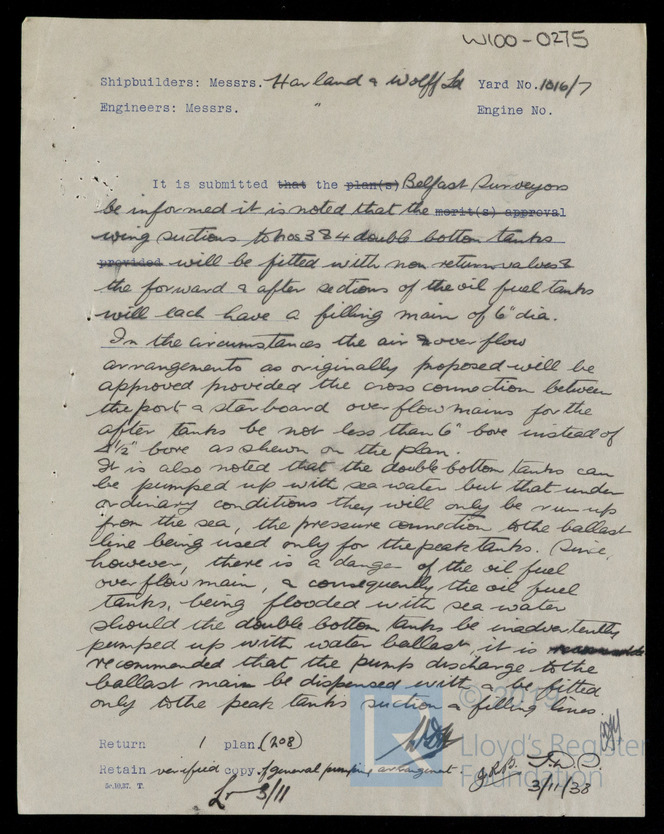 W100-0275
Shipbuilders: Messrs. Harland & Wolff Ld Yard No. 1016/7
Engineers: Messrs. " Engine No.
It is submitted that the plan(s) Belfast Surveyors
be informed it is noted that the merit(s) approval
wing suctions to Nos 3 & 4 double bottom tanks
provided will be fitted with non return valves &
the forward & after sections of the oil fuel tanks
will each have a filling main of 6" dia.
In the circumstances the air & over flow
arrangements as originally proposed will be
approved provided the cross connection between
the port & starboard over flow mains for the
after tanks be not less than 6" bore instead of
4½" bore as shewn on the plan.
It is also noted that the double bottom tanks can
be pumped up with sea water but that under
ordinary conditions they will only be run up
from the sea, the pressure connection to the ballast
line being used only for the peak tanks. Since,
however, there is a danger of the oil fuel
over flow main, & consequently the oil fuel
tanks, being flooded with sea water
should the double bottom tanks be inadvertently
pumped up with water ballast, it is
recommended that the pump discharge to the
ballast main be dispensed with & be fitted
only to the peak tanks suction & filling lines.
Return 1 plan (208)
Retain verified copy of general pumping arrangement.
5c.10.37. T.
3/11
J.R.B.
3/11/38
© 2019
Lloyd's Register
Foundation